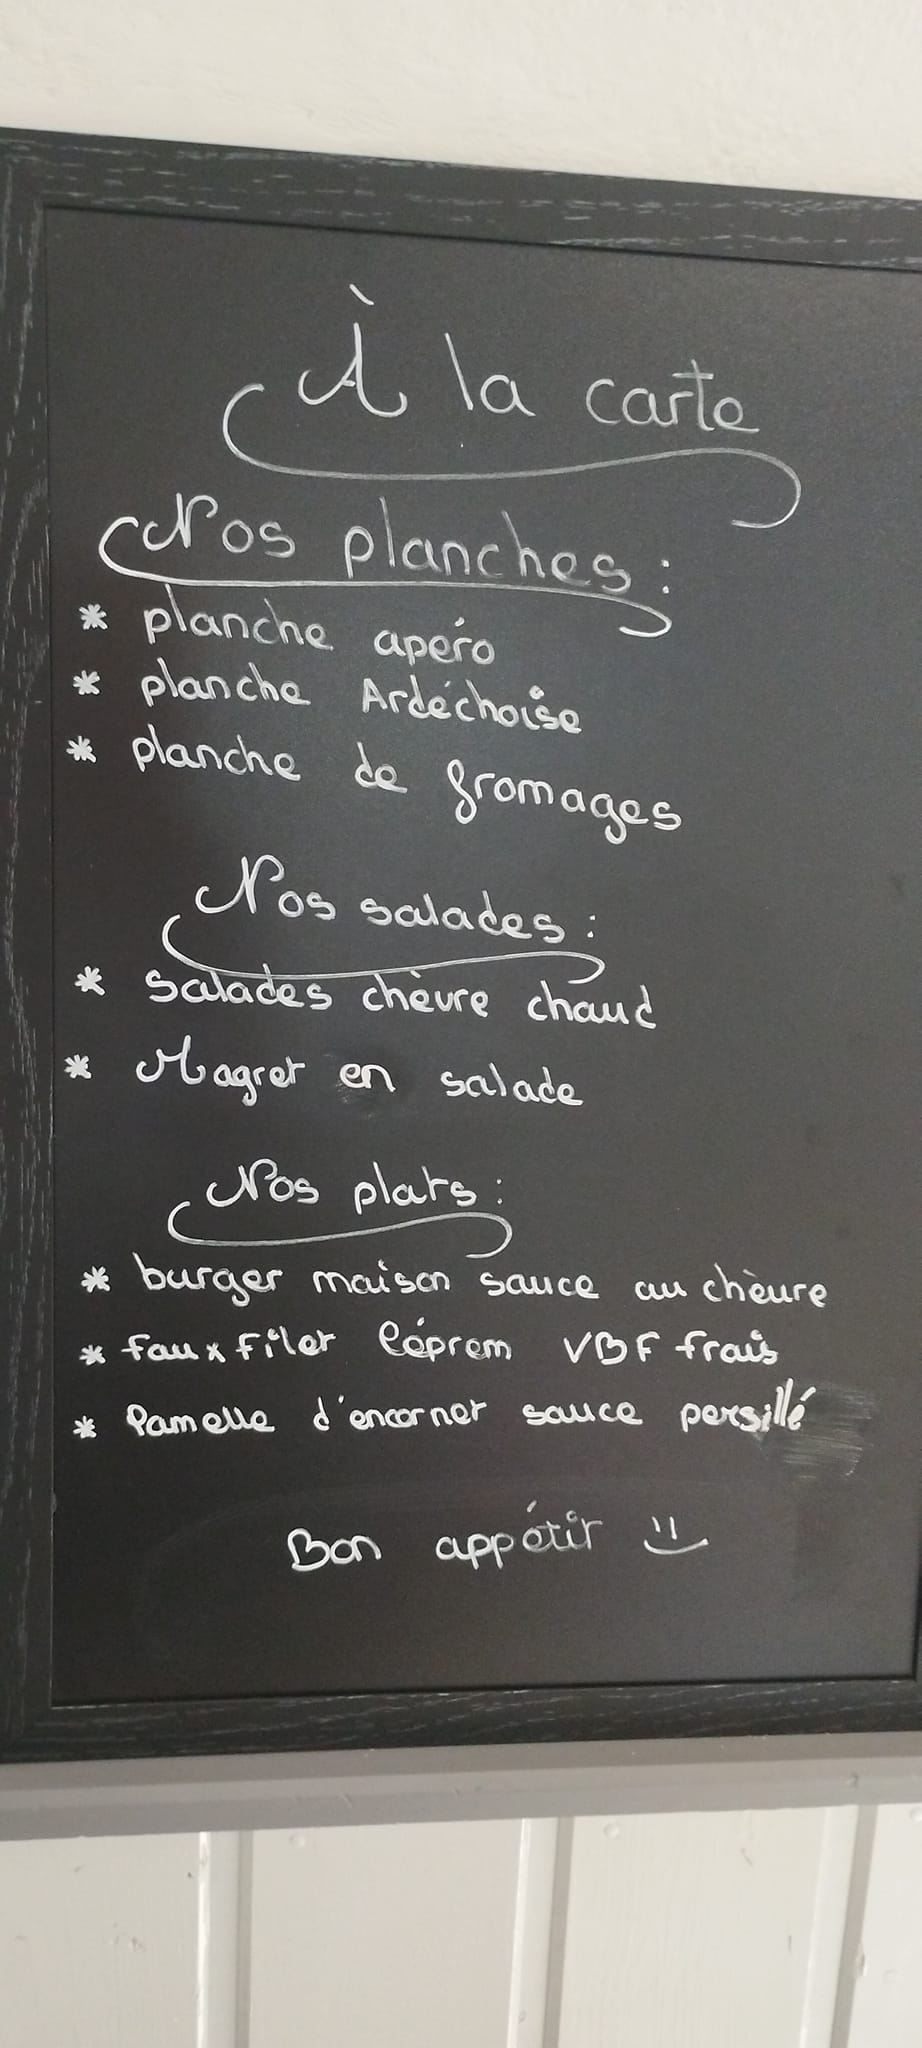 À la carte
Nos planches :
* planche apéro
* planche Ardéchoise
* planche de fromages
Nos salades :
* Salades chèvre chaud
* Magret en salade
Nos plats :
* burger maison sauce au chèvre
* Faux Filet VBF frais
* Lamelle d'encornet sauce persillé
Bon appétit